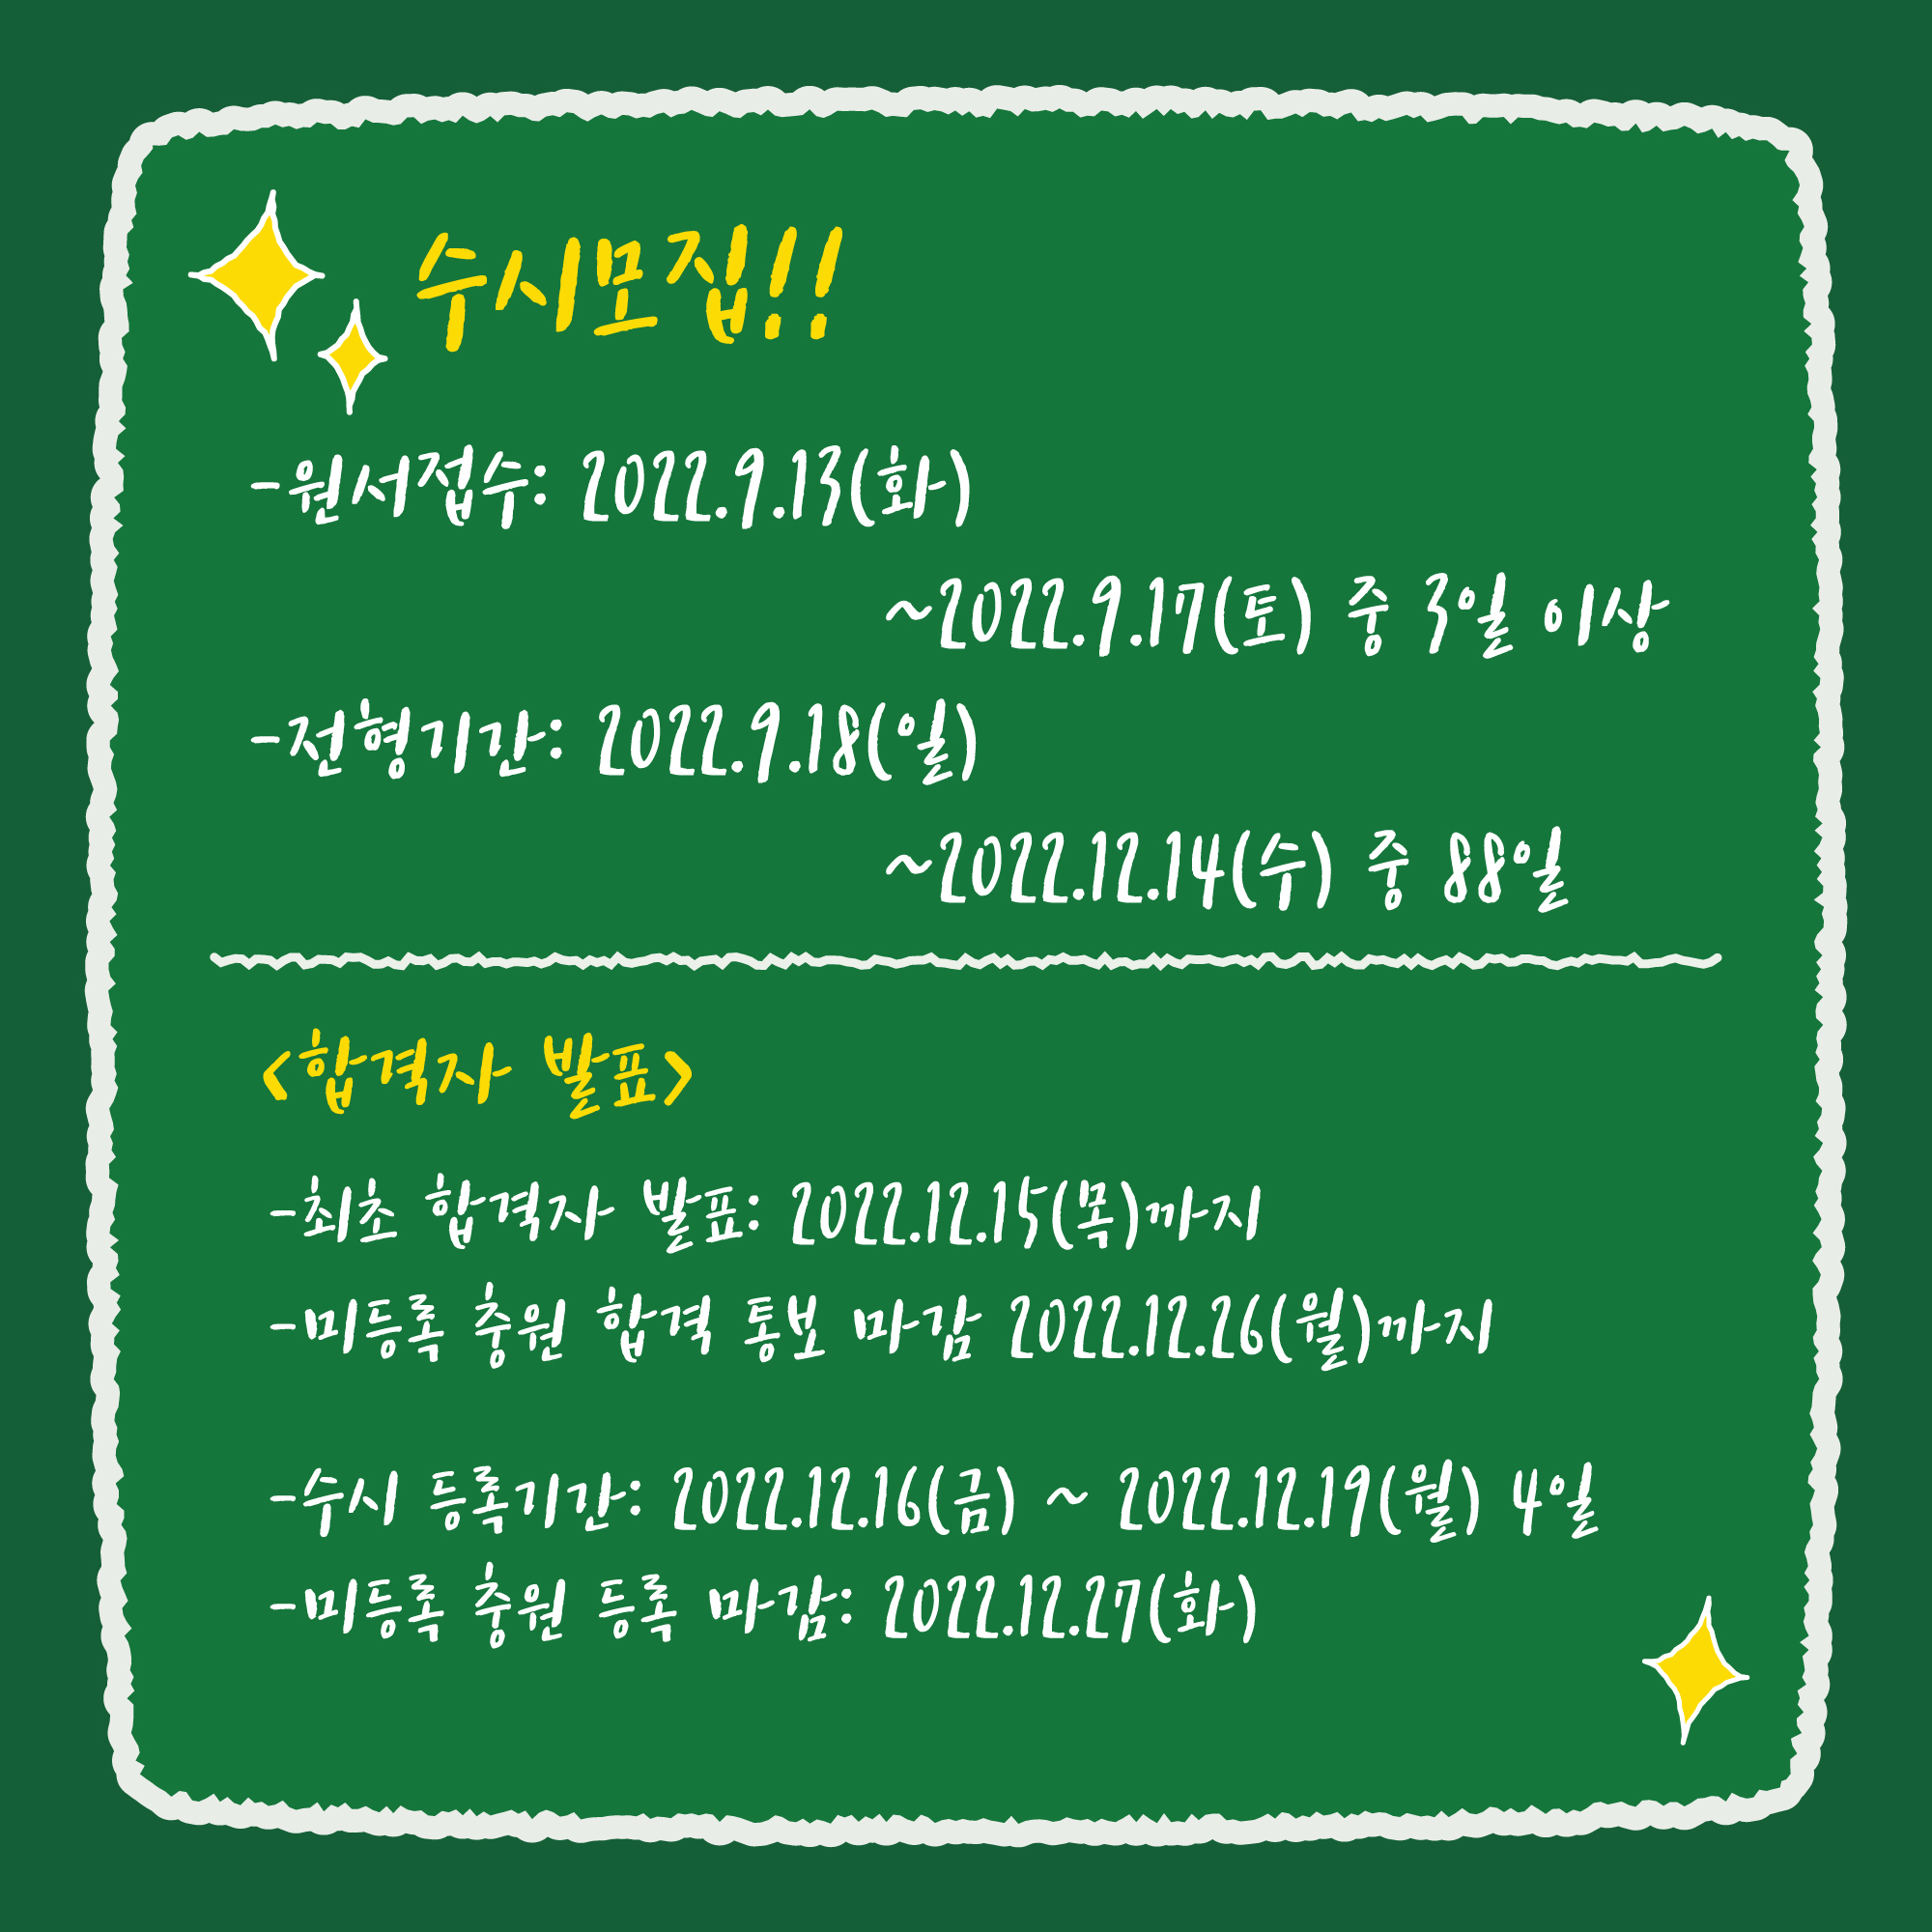 수시모집!!
-원서접수: 2022.9.13(화)
~2022.9.17(토) 중 3일 이상
-전형기간: 2022.9.18(일)
~2022.12.14(수) 중 88일
<합격자 발표>
-최초 합격자 발표: 2022.12.15(목)까지
-미등록 충원 합격 통보 마감 2022.12.26(월)까지
-수시 등록기간: 2022.12.16(금) ~ 2022.12.19(월) 4일
-미등록 충원 등록 마감: 2022.12.27(화)